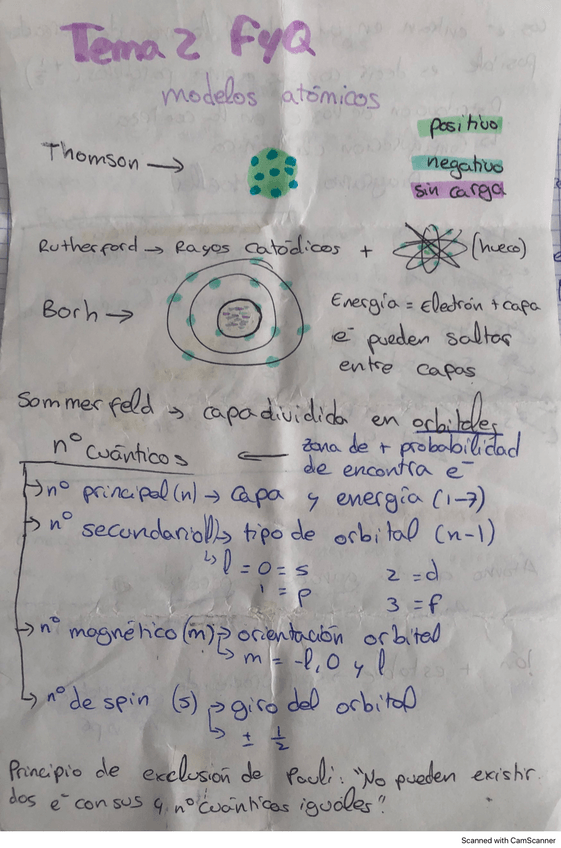 Tema 2 FyQ
modelos atómicos
positivo
Thomson →
negativo
sin carga
Rutherford → Rayos Catódicos + (hueco)
Borh →
Energía = Electrón + capa
e⁻ pueden saltar
entre capas
Sommerfeld → capa dividida en orbitales
nº cuánticos ← zona de + probabilidad
de encontra e⁻
→ nº principal (n) → capa y energía (1-7)
→ nº secundario (l) → tipo de orbital (n-1)
↳ l = 0 = s
2 = d
1 = p
3 = f
→ nº magnético (m) → orientación orbital
↳ m = -l, 0 y l
↳ nº de spin (s) → giro del orbital
↳ ± 1/2
Principio de exclusión de Pauli: "No pueden existir
dos e⁻ con sus 4 nº cuánticos iguales"
Scanned with CamScanner